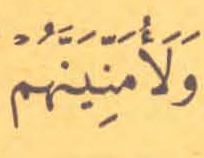 وَلَأُمَنِّيَنَّهُمْ